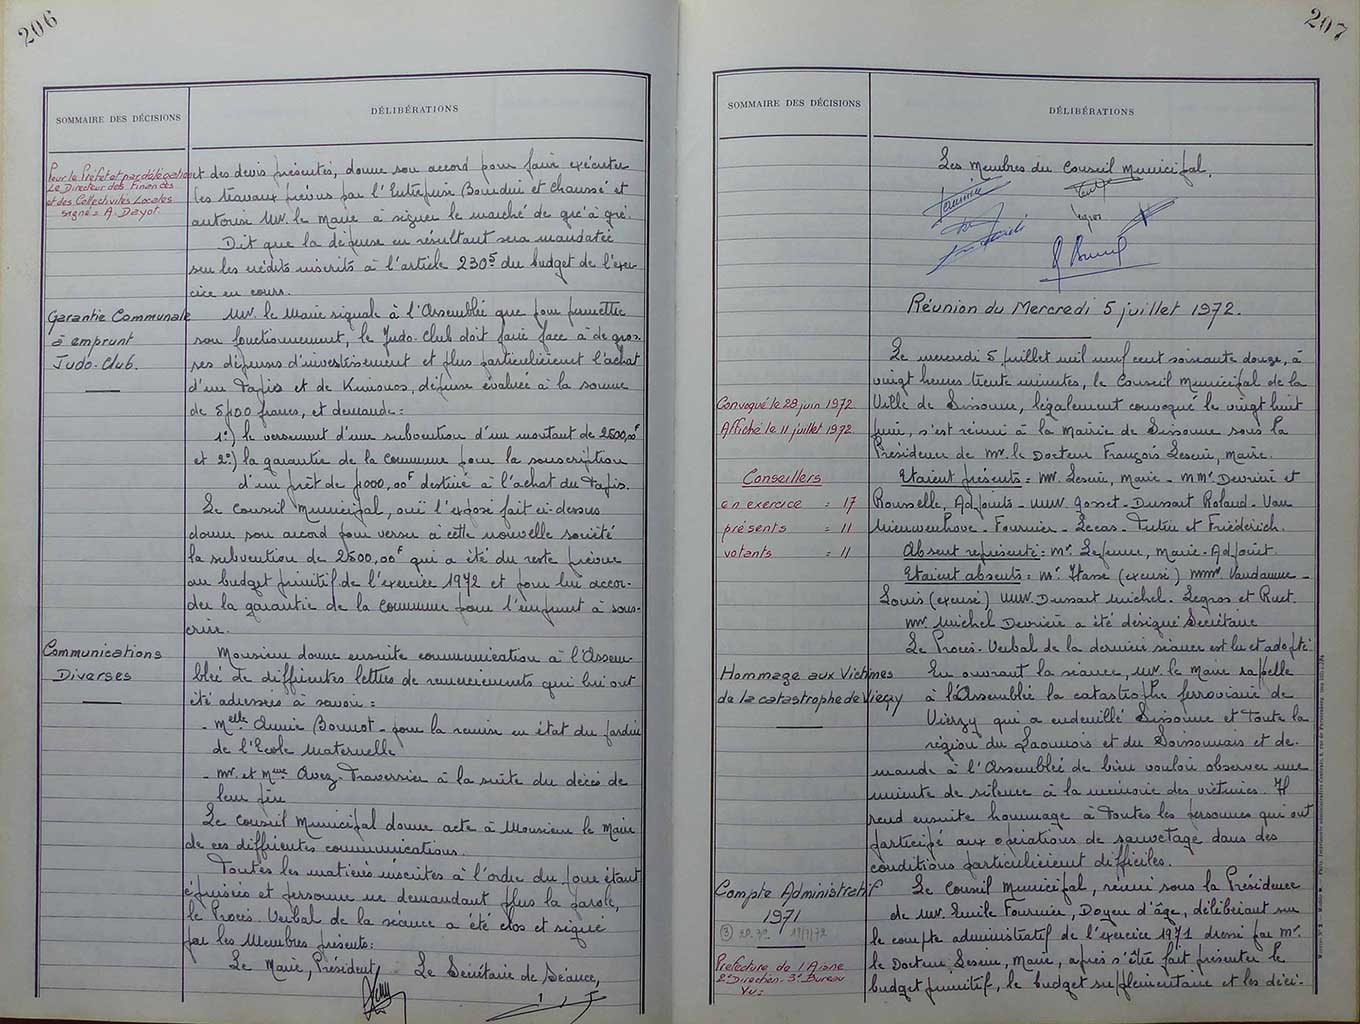 206
SOMMAIRE DES DÉCISIONS
DÉLIBÉRATIONS
Pour le Préfet et par délégation
Le Directeur des Finances
et des Collectivités Locales
signé = A. Dayot.
et des devis présentés, donne son accord pour faire exécuter
les travaux prévus par l'Entreprise Bourdin et Chaussé et
autorise Mr. le Maire à signer le marché de gré à gré.
Dit que la dépense en résultant sera mandatée
sur les crédits inscrits à l'article 2305 du budget de l'exer-
cice en cours.
Garantie Communale
à emprunt
Judo-Club.
Mr. le Maire signale à l'Assemblée que pour permettre
son fonctionnement, le Judo-Club doit faire face à de gros-
ses dépenses d'investissement et plus particulièrement l'achat
d'un Tapis et de Kimonos, dépense évaluée à la somme
de francs, et demande :
1°) le versement d'une subvention d'un montant de 2500,00F
et 2°) la garantie de la Commune pour la souscription
d'un prêt de 000,00F destiné à l'achat du Tapis.
Le Conseil Municipal, ouï l'exposé fait ci-dessus
donne son accord pour verser à cette nouvelle société
la subvention de 2500,00F qui a été du reste prévue
au budget primitif de l'exercice 1972 et pour lui accor-
der la garantie de la Commune pour l'emprunt à sous-
crire.
Communications
Diverses
Monsieur donne ensuite communication à l'Assem-
blée de différentes lettres de remerciements qui lui ont
été adressées à savoir :
- Melle Annie - pour la remise en état du jardin
de l'Ecole Maternelle
- Mr. et Mme Avez-Traversier à la suite du décès de
leur
Le Conseil Municipal donne acte à Monsieur le Maire
de ces différentes communications.
Toutes les matières inscrites à l'ordre du jour étant
épuisées et personne ne demandant plus la parole,
le Procès-Verbal de la séance a été clos et signé
par les Membres présents :
Le Maire, Président, Le Secrétaire de Séance,
207
SOMMAIRE DES DÉCISIONS
DÉLIBÉRATIONS
Les Membres du Conseil Municipal,
Réunion du Mercredi 5 juillet 1972.
Convoqué le 28 juin 1972
Affiché le 11 juillet 1972
Le mercredi 5 juillet mil neuf cent soixante douze, à
vingt heures trente minutes, le Conseil Municipal de la
Ville de Sissonne, légalement convoqué le vingt huit
juin, s'est réuni à la Mairie de Sissonne sous la
Présidence de Mr. le Docteur François, Maire.
Conseillers
en exercice = 17
présents = 11
votants = 11
Etaient présents = Mr., Maire - MM. Devrière et
Rousselle, Adjoints - MM. Gosset - Dussart Roland - Van
Nieuwenhove - Fournier - Lecas - et Friederich.
Absent représenté = Mr., Maire-Adjoint.
Etaient absents = Mr. Hasse (excusé) Mme Vandamme -
Louis (excusé) MM. Dussart Michel - Legros et Ruet.
Mr. Michel Devrière a été désigné Secrétaire
Le Procès-Verbal de la dernière séance est lu et adopté
Hommage aux Victimes
de la catastrophe de Vierzy
En ouvrant la séance, Mr. le Maire rappelle
à l'Assemblée la catastrophe ferroviaire de
Vierzy qui a endeuillé Sissonne et toute la
région du Laonnois et du Soissonnais et de-
mande à l'Assemblée de bien vouloir observer une
minute de silence à la mémoire des victimes. Il
rend ensuite hommage à toutes les personnes qui ont
participé aux opérations de sauvetage dans des
conditions particulièrement difficiles.
Compte Administratif
1971
Préfecture de l'Aisne
2e Direction - 3e Bureau
Vu :
Le Conseil Municipal, réuni sous la Présidence
de Mr. Emile Fournier, Doyen d'âge, délibérant sur
le compte administratif de l'exercice 1971 dressé par Mr.
le Docteur, Maire, après s'être fait présenter le
budget primitif, le budget supplémentaire et les déci-